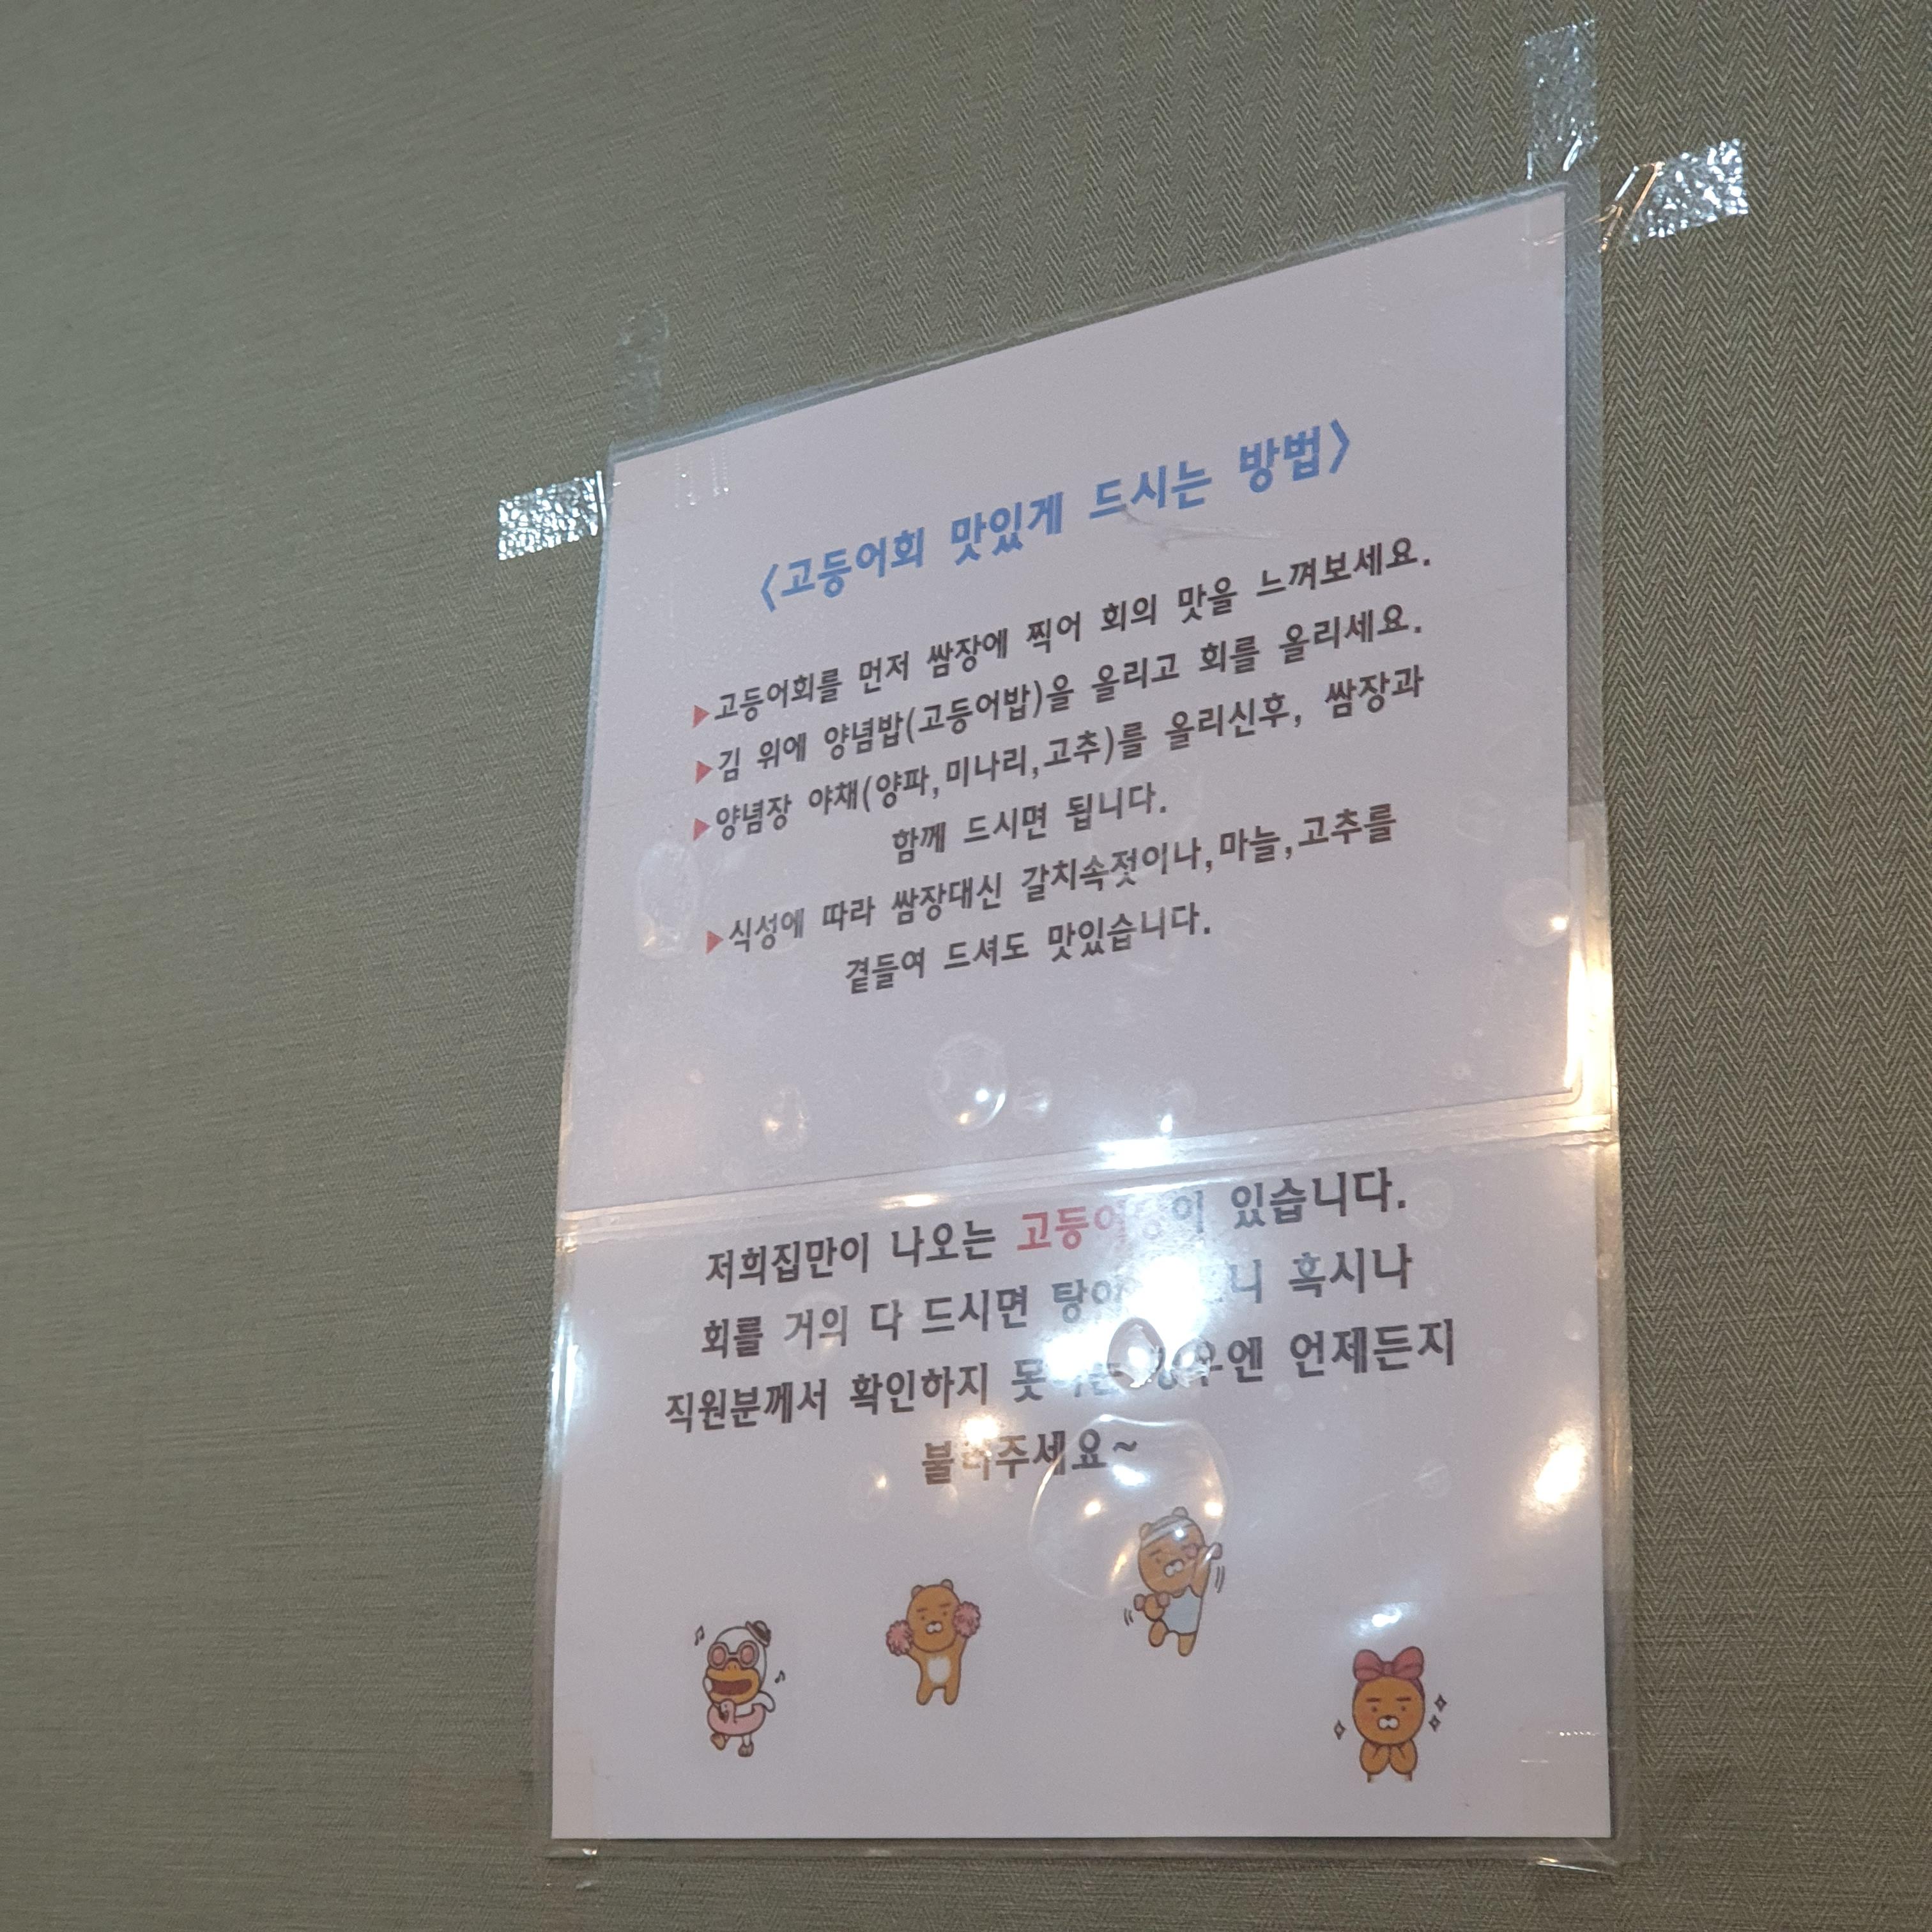 〈고등어회 맛있게 드시는 방법〉
▶고등어회를 먼저 쌈장에 찍어 회의 맛을 느껴보세요.
▶김 위에 양념밥(고등어밥)을 올리고 회를 올리세요.
▶양념장 야채(양파,미나리,고추)를 올리신후, 쌈장과
함께 드시면 됩니다.
▶식성에 따라 쌈장대신 갈치속젓이나,마늘,고추를
곁들여 드셔도 맛있습니다.
저희집만이 나오는 있습니다.
회를 거의 다 드시면 혹시나
직원분께서 확인하지 언제든지
불러주세요~